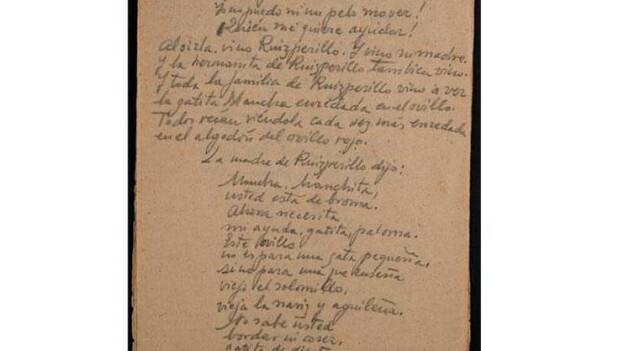 No puedo ni un pelo mover!
¡Quién me quiere ayudar!
Al oirla, vino Ruizperillo. Y vino su madre.
Y la hermanita de Ruizperillo tambien vino.
Y toda la familia de Ruizperillo vino a ver
la gatita Mancha enredada en el ovillo.
Todos reian viendola cada vez más enredada
en el algodón del ovillo rojo.
La madre de Ruizperillo dijo:
Mancha, Manchita,
usted está de broma.
Ahora necesita
mi ayuda, gatita, paloma.
Este ovillo
no es para una gata pequeña,
sino para una que enseña
viejo el solomillo,
vieja la nariz y aguileña.
No sabe usted
bordar ni coser,